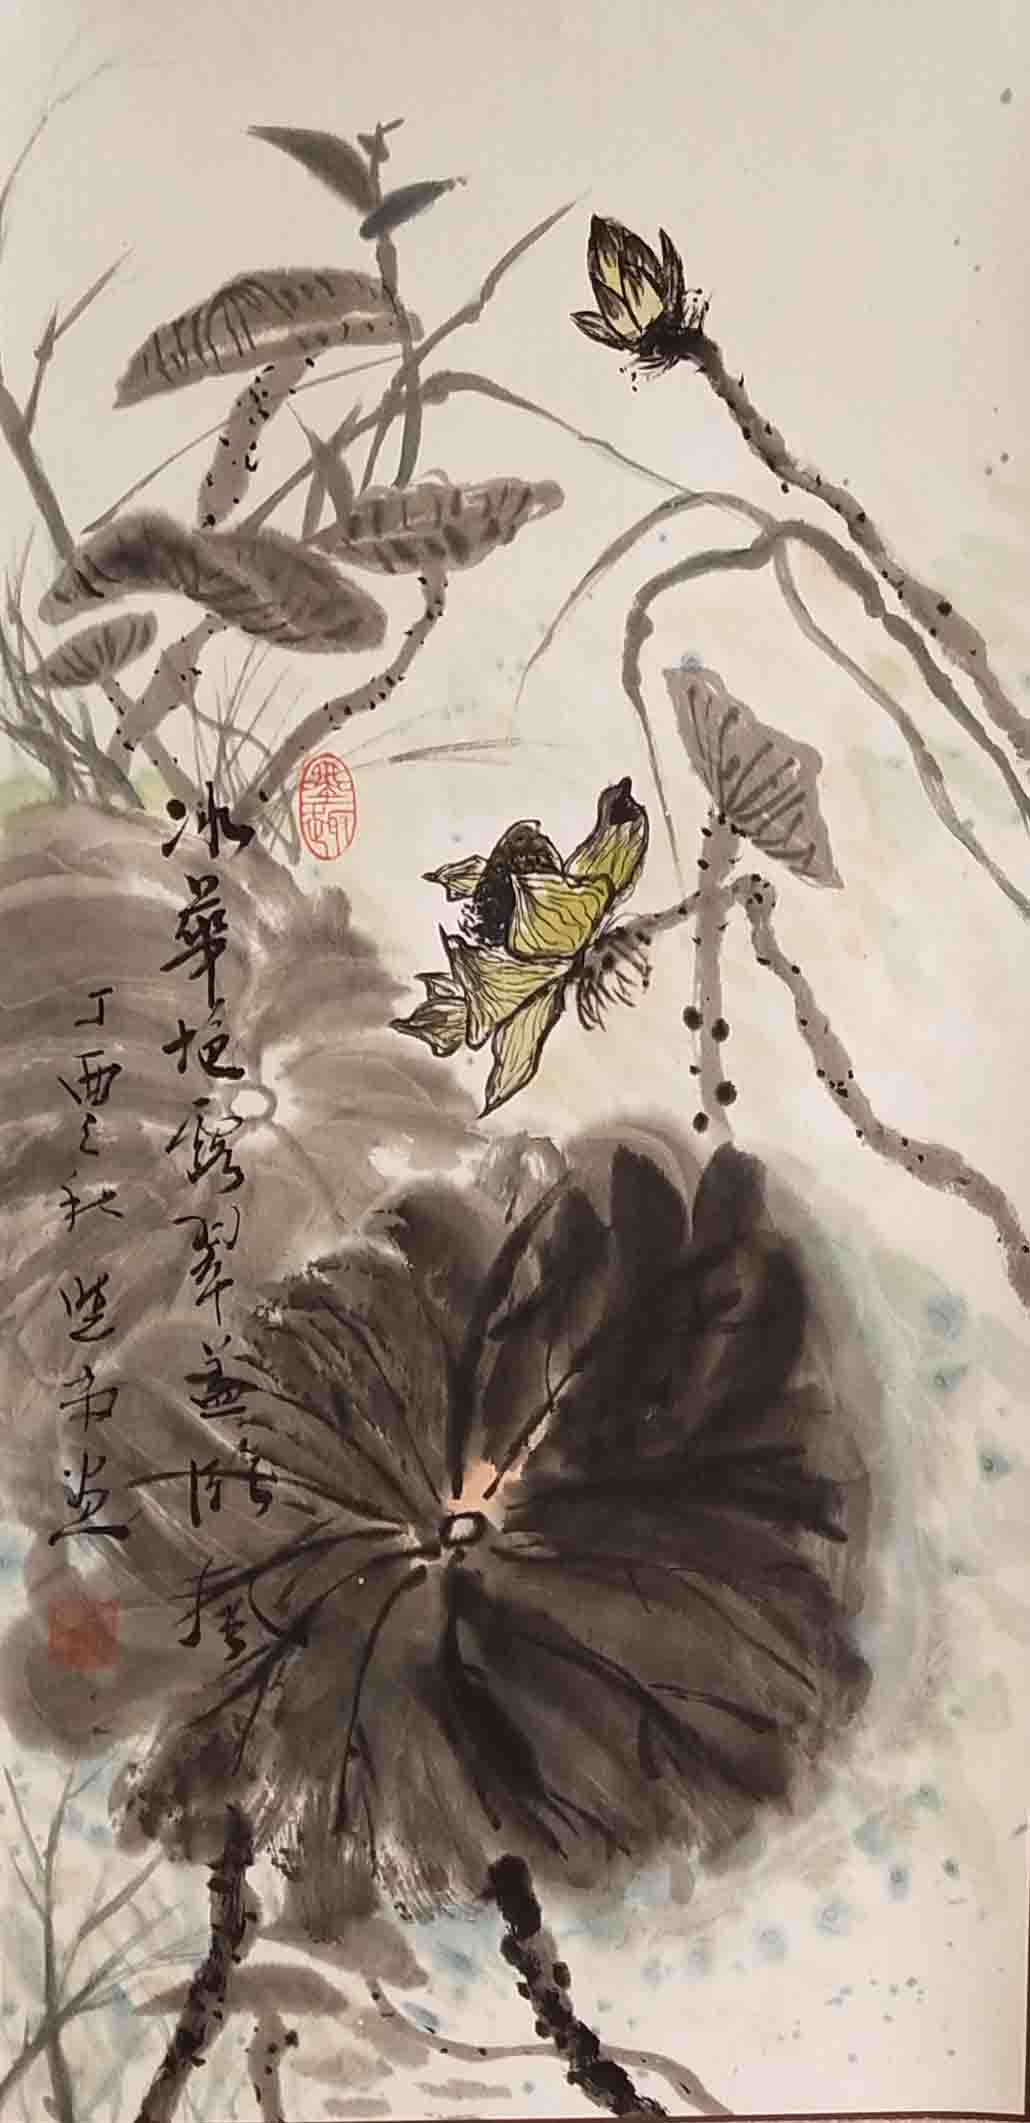 冰華挹露翠蓋臨風
丁酉之秋楚南畫